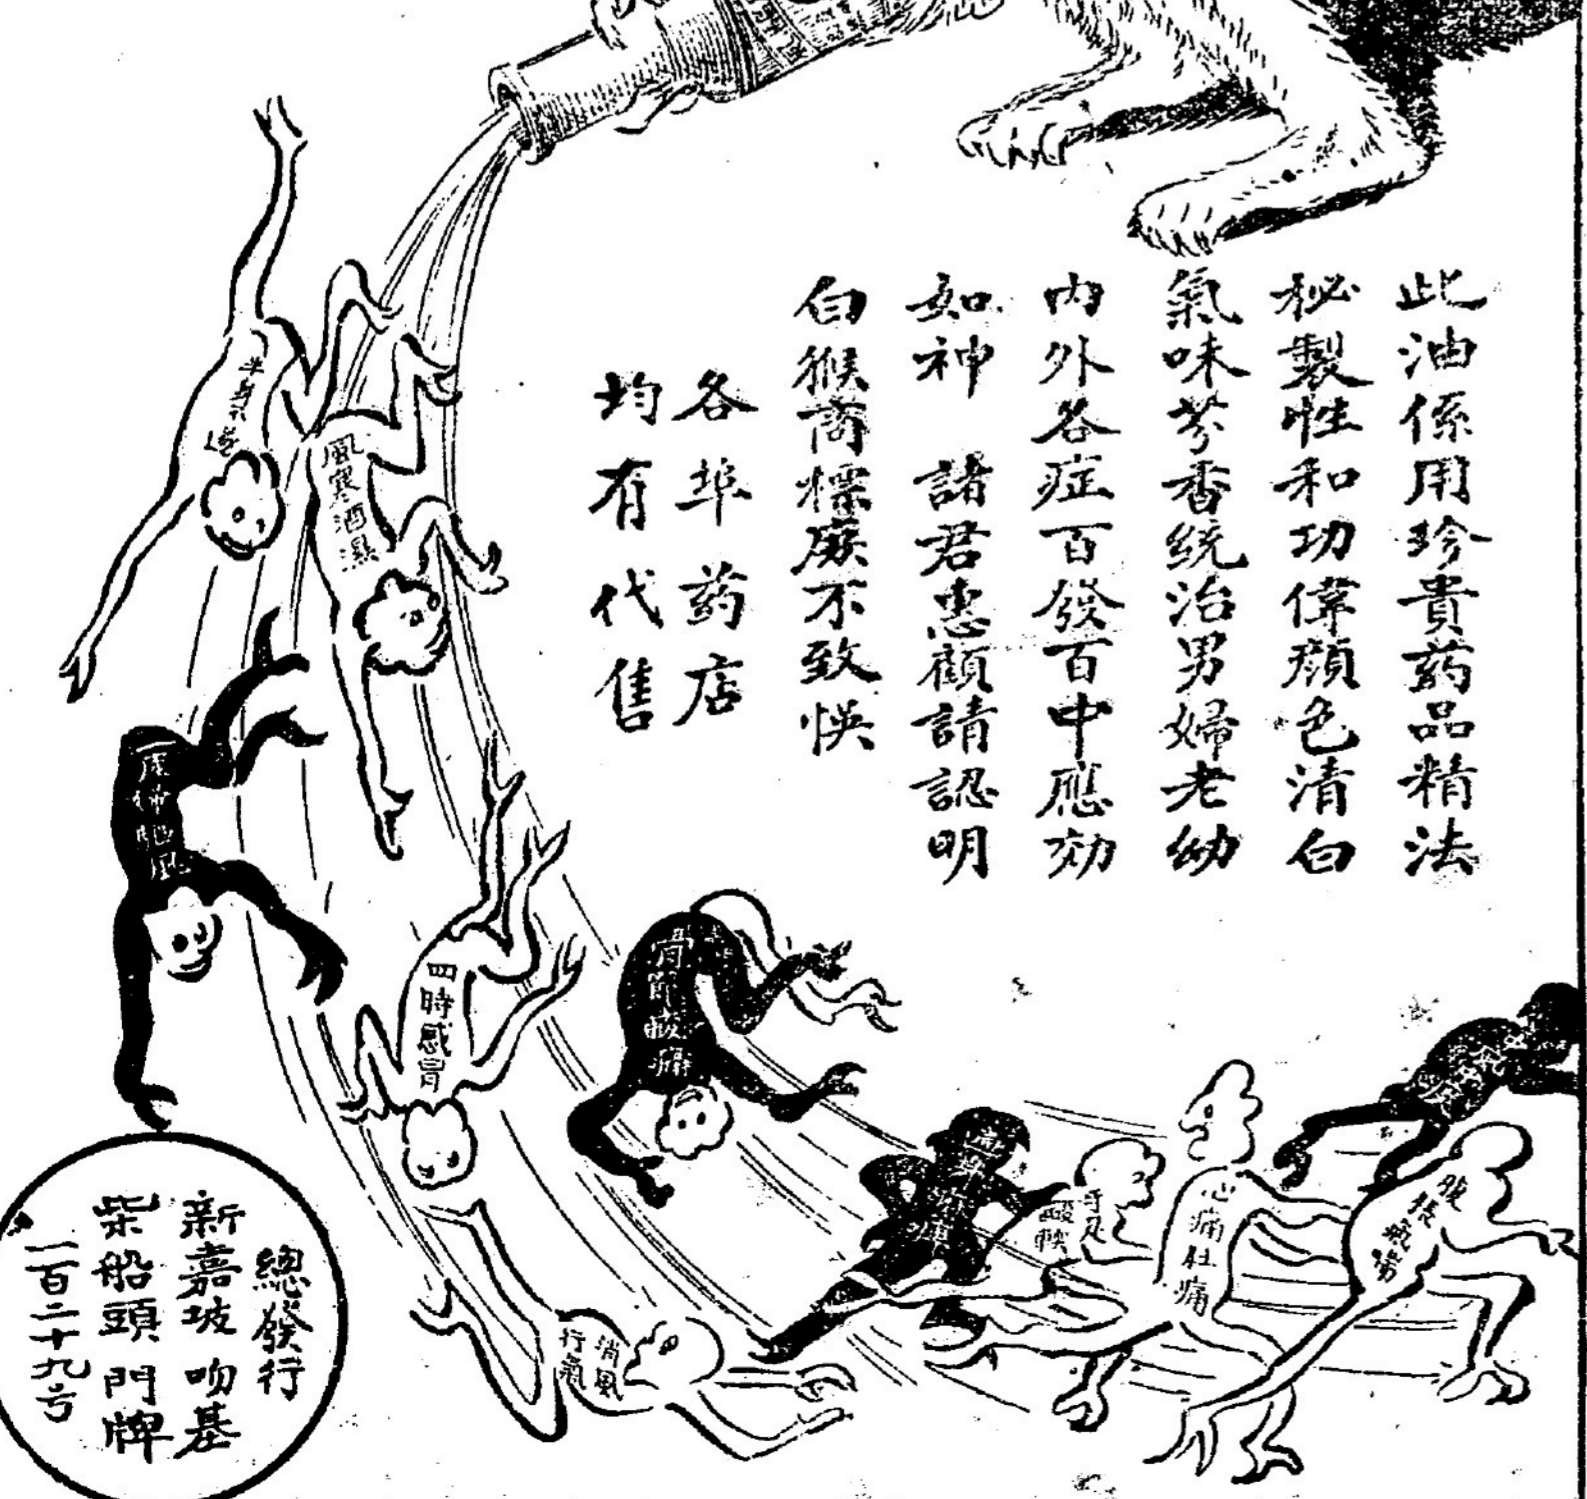 此油係用珍貴葯品精法
秘製性和功偉顏色清白
氣味芬香統治男婦老幼
内外各症百發百中應効
如神 諸君惠顧請認明
白猴商標庶不致悞
各埠葯店
均有代售
半身不遂
風寒酒濕
四時感冒
骨節酸痛
心痛肚痛
消風
行氣
總發行
新嘉坡吻基
柴船頭門牌
一百二十九号